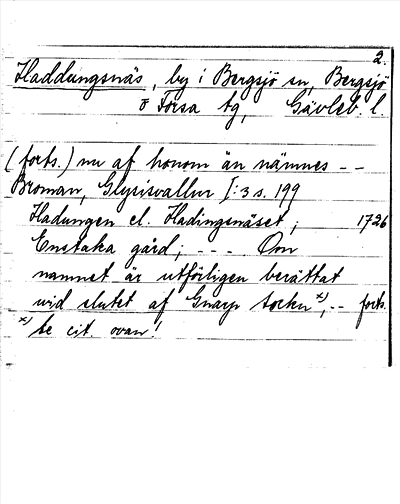 2.
Haddungsnäs, by i Bergsjö sn, Bergsjö
o Forsa tg, Gävleb. l.
(forts.) nu af honom än nämnes --
Broman, Glysisvallur I:3 s. 199
Hadungen el. Hadingsnäset; 1726
Enstaka gård; -- Om
namnet är utförligen berättat
wid slutet af Gnarp sockn x), -- forts.
x) Se cit. ovan!